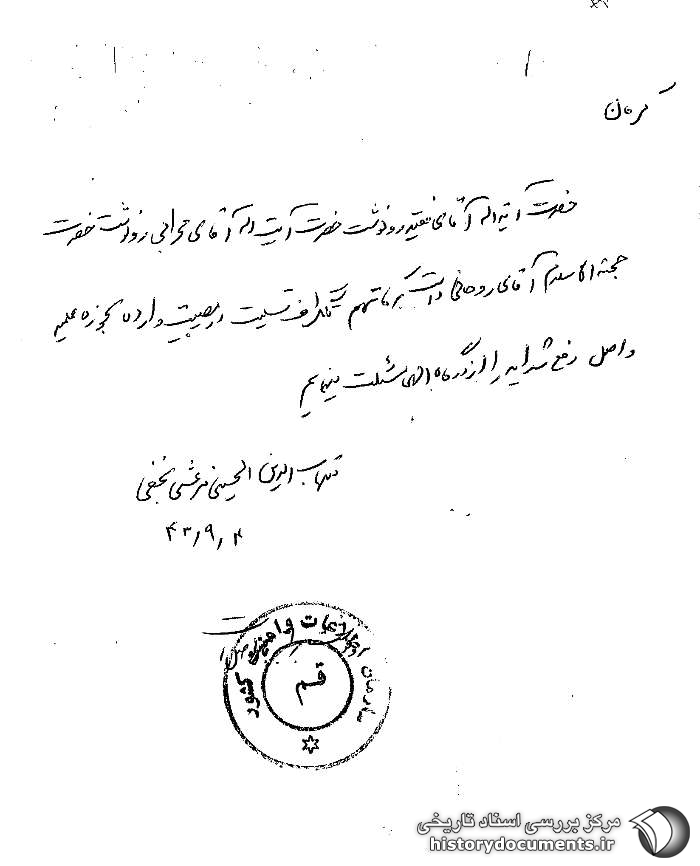 کرمان
حضرت آیة اله آقای فقیه رونوشت حضرت آیت اله آقای رونوشت حضرت
حجة الاسلام آقای روحانی تلگراف تسلیت در مصیبت وارده بحوزه علمیه
واصل رفع شداید را از درگاه الهی مسئلت مینمایم
شهاب الدین الحسینی مرعشی نجفی
۴۳/۹/۴
سازمان اطلاعات و امنیت کشور
قم
مرکز بررسی اسناد تاریخی
historydocuments.ir